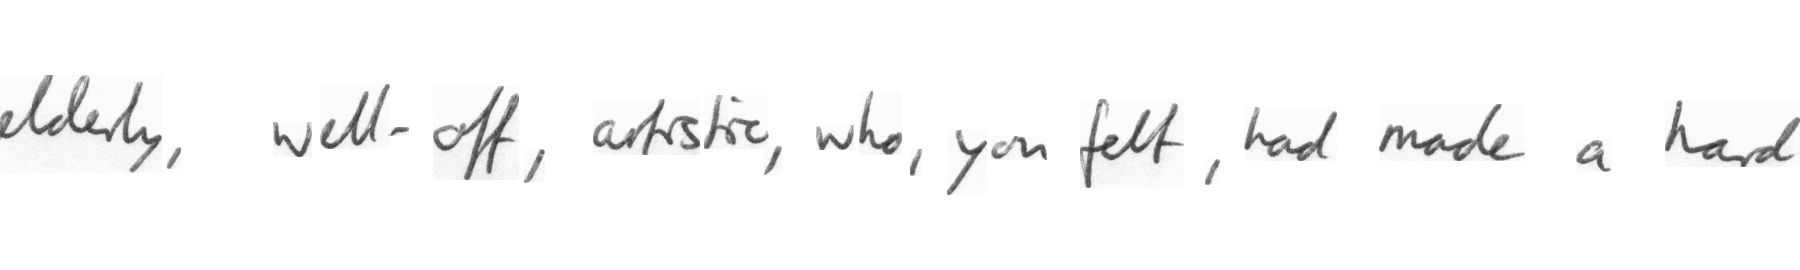 elderly, well-off, artistic, who, you felt, had made a hard